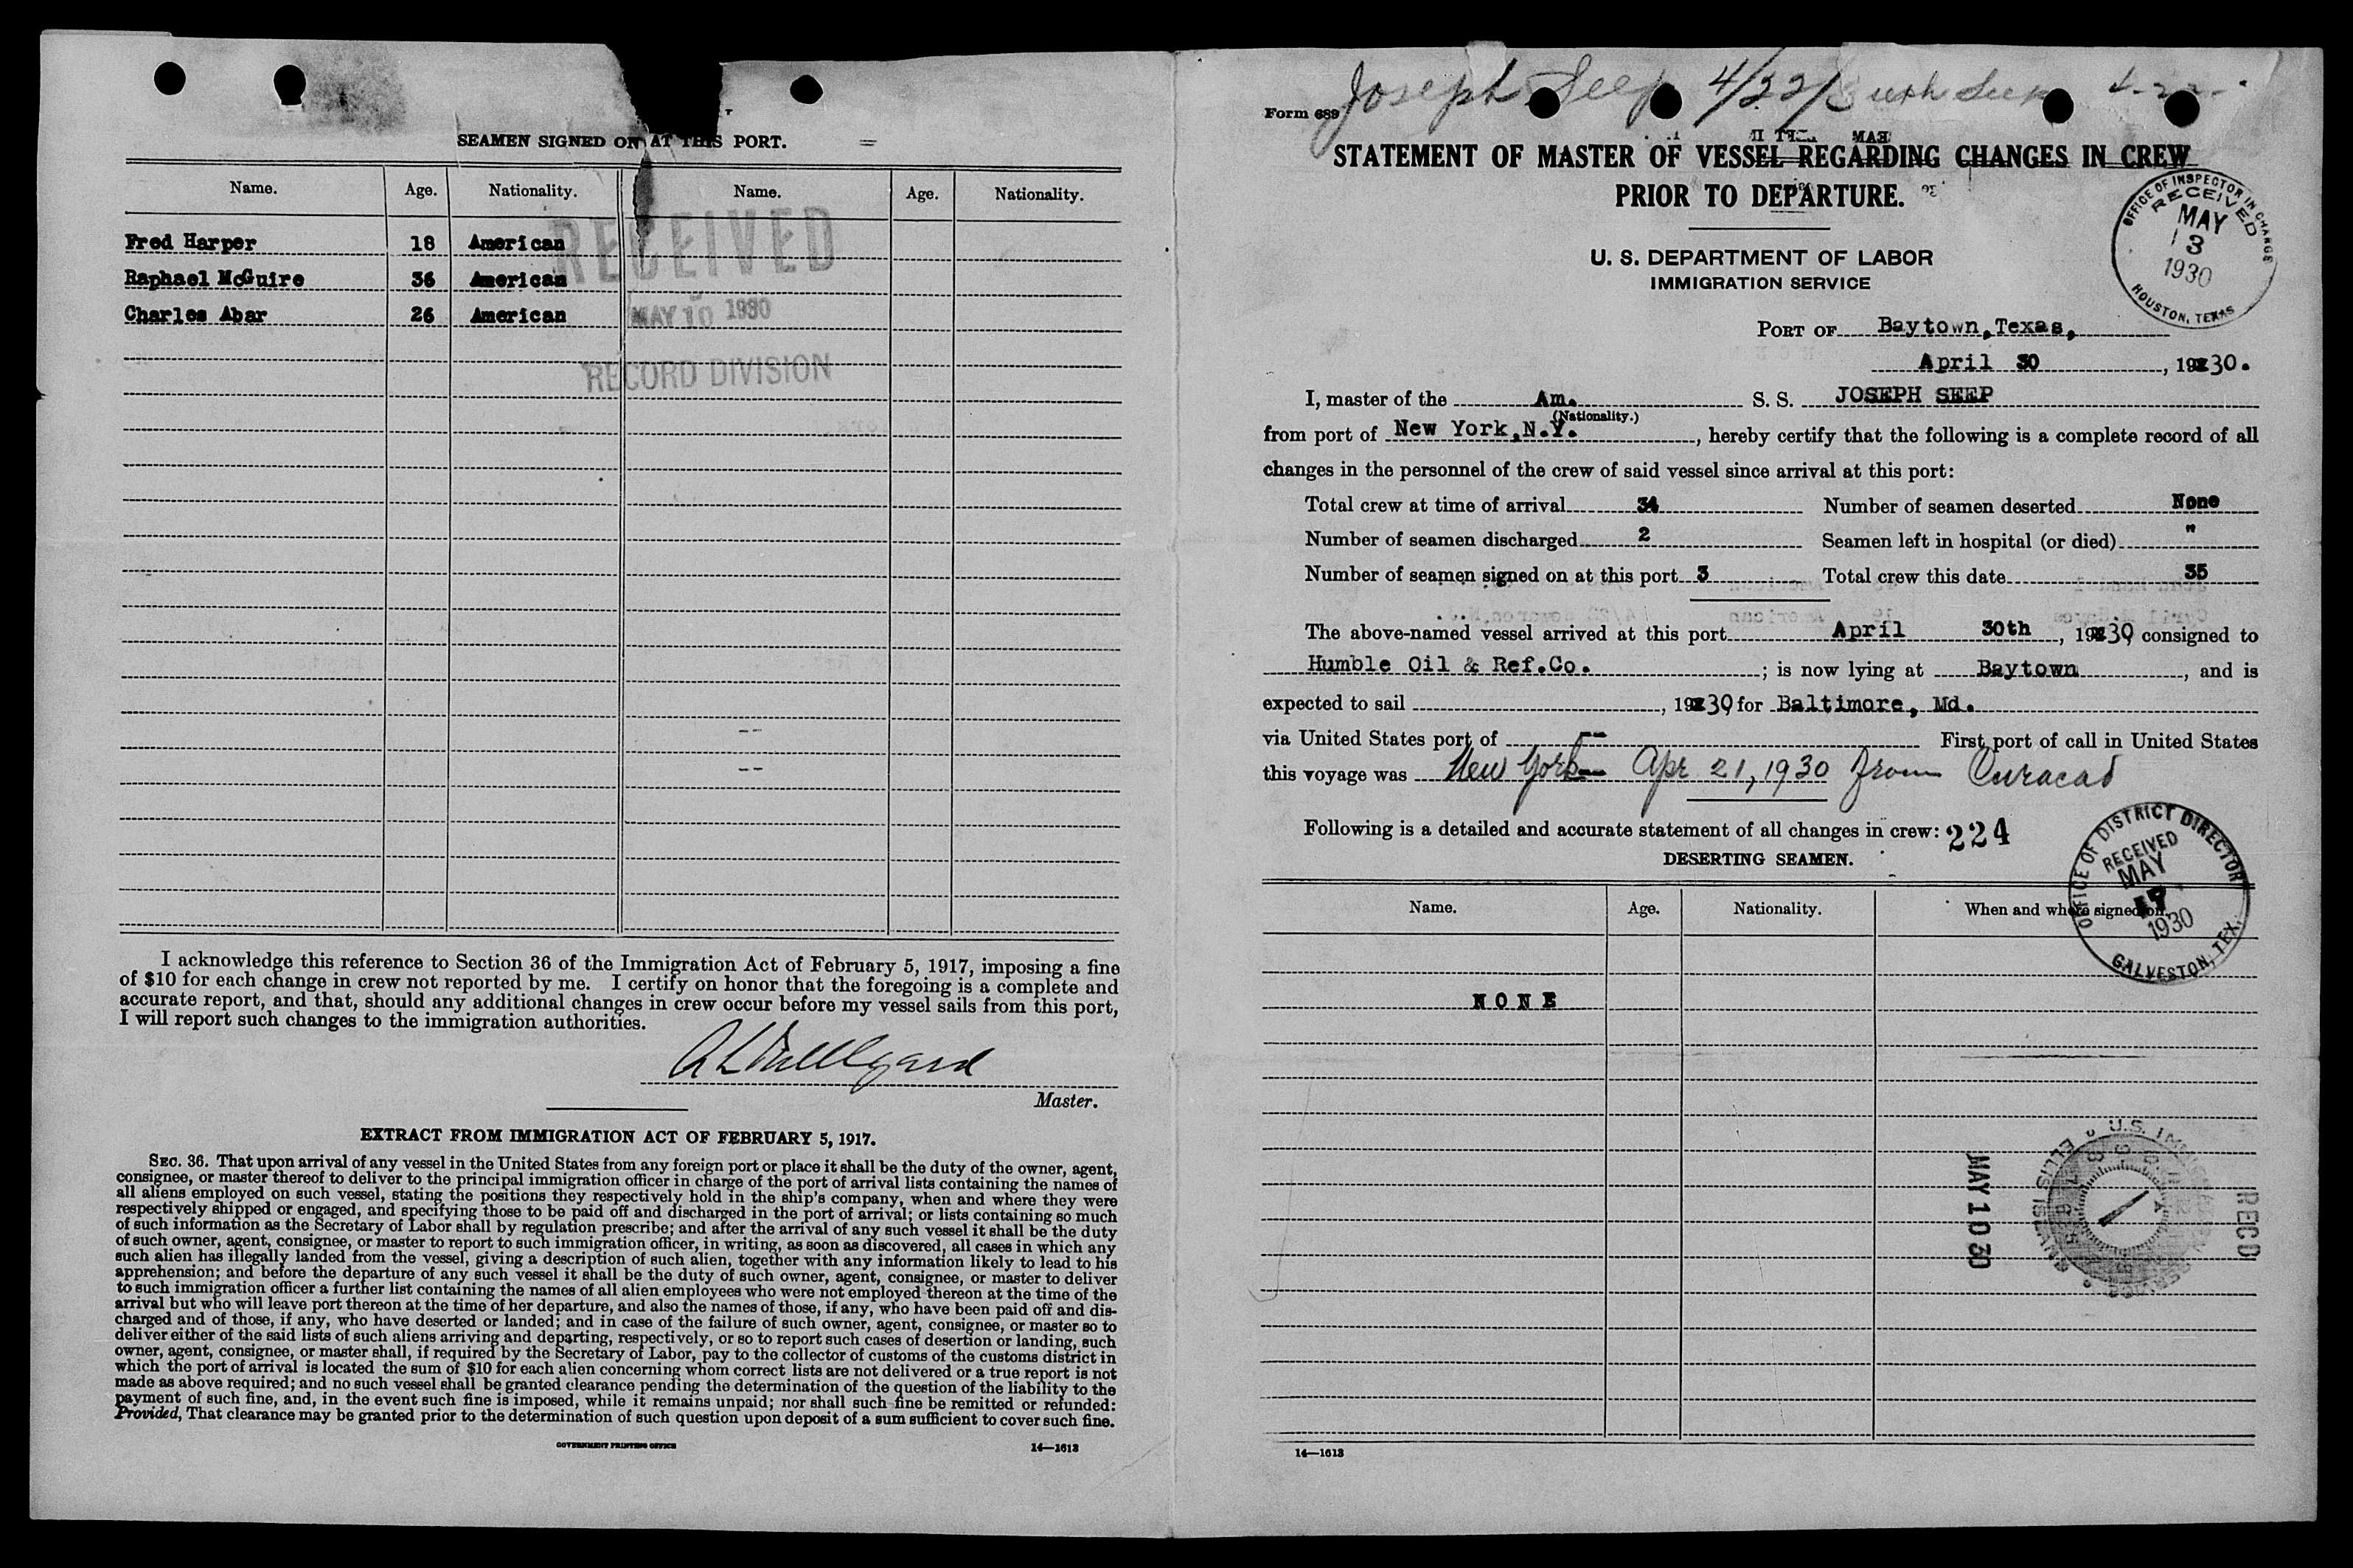 SEAMEN SIGNED ON AT THIS PORT.
Name. Age. Nationality. Name. Age. Nationality.
Fred Harper 18 American
Raphael McGuire 36 American
Charles Abar 26 American
RECEIVED
MAY 10 1930
RECORD DIVISION
I acknowledge this reference to Section 36 of the Immigration Act of February 5, 1917, imposing a fine
of $10 for each change in crew not reported by me. I certify on honor that the foregoing is a complete and
accurate report, and that, should any additional changes in crew occur before my vessel sails from this port,
I will report such changes to the immigration authorities.
Master.
EXTRACT FROM IMMIGRATION ACT OF FEBRUARY 5, 1917.
SEC. 36. That upon arrival of any vessel in the United States from any foreign port or place it shall be the duty of the owner, agent,
consignee, or master thereof to deliver to the principal immigration officer in charge of the port of arrival lists containing the names of
all aliens employed on such vessel, stating the positions they respectively hold in the ship's company, when and where they were
respectively shipped or engaged, and specifying those to be paid off and discharged in the port of arrival; or lists containing so much
of such information as the Secretary of Labor shall by regulation prescribe; and after the arrival of any such vessel it shall be the duty
of such owner, agent, consignee, or master to report to such immigration officer, in writing, as soon as discovered, all cases in which any
such alien has illegally landed from the vessel, giving a description of such alien, together with any information likely to lead to his
apprehension; and before the departure of any such vessel it shall be the duty of such owner, agent, consignee, or master to deliver
to such immigration officer a further list containing the names of all alien employees who were not employed thereon at the time of the
arrival but who will leave port thereon at the time of her departure, and also the names of those, if any, who have been paid off and dis-
charged and of those, if any, who have deserted or landed; and in case of the failure of such owner, agent, consignee, or master so to
deliver either of the said lists of such aliens arriving and departing, respectively, or so to report such cases of desertion or landing, such
owner, agent, consignee, or master shall, if required by the Secretary of Labor, pay to the collector of customs of the customs district in
which the port of arrival is located the sum of $10 for each alien concerning whom correct lists are not delivered or a true report is not
made as above required; and no such vessel shall be granted clearance pending the determination of the question of the liability to the
payment of such fine, and, in the event such fine is imposed, while it remains unpaid; nor shall such fine be remitted or refunded:
Provided, That clearance may be granted prior to the determination of such question upon deposit of a sum sufficient to cover such fine.
GOVERNMENT PRINTING OFFICE 14—1613
Joseph Seep 4/22/
Form 689
STATEMENT OF MASTER OF VESSEL REGARDING CHANGES IN CREW
PRIOR TO DEPARTURE.
OFFICE OF INSPECTOR IN CHARGE
RECEIVED
MAY
3
1930
HOUSTON, TEXAS
U. S. DEPARTMENT OF LABOR
IMMIGRATION SERVICE
PORT OF Baytown, Texas,
April 30, 1930.
I, master of the Am. S. S. JOSEPH SEEP
(Nationality.)
from port of New York, N.Y., hereby certify that the following is a complete record of all
changes in the personnel of the crew of said vessel since arrival at this port:
Total crew at time of arrival 34 Number of seamen deserted None
Number of seamen discharged 2 Seamen left in hospital (or died) "
Number of seamen signed on at this port 3 Total crew this date 35
The above-named vessel arrived at this port April 30th, 1930, consigned to
Humble Oil & Ref.Co.; is now lying at Baytown, and is
expected to sail , 1930, for Baltimore, Md.
via United States port of -- First port of call in United States
this voyage was New York -- Apr 21, 1930 from Curacao
Following is a detailed and accurate statement of all changes in crew: 224
DESERTING SEAMEN.
OFFICE OF DISTRICT DIRECTOR
RECEIVED
MAY
1930
GALVESTON, TEX.
Name. Age. Nationality. When and where signed on.
NONE
MAY 10 30
RECD
14—1613